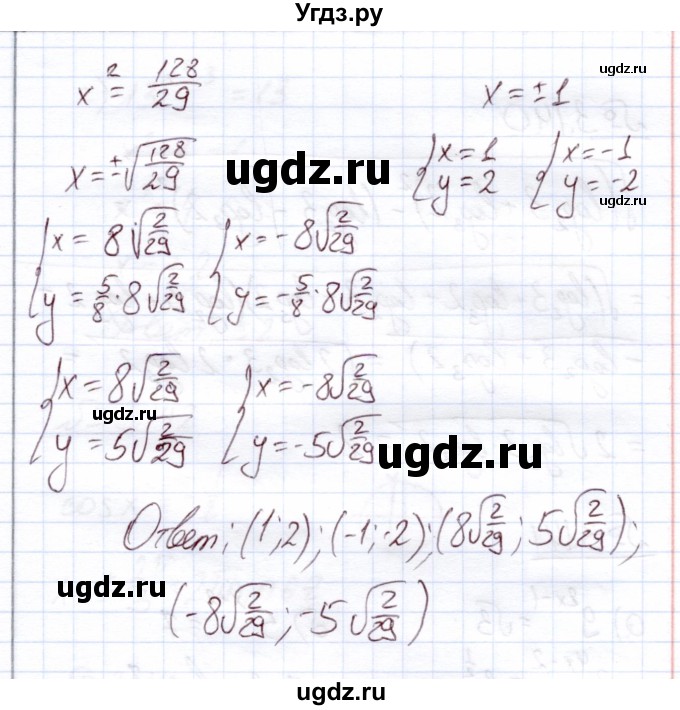 Угдз.ру
ugdz.ru
x² = 128/29
x = ±1
ugdz.ru
x = ±√(128/29)
ugdz.ru
{ x = 1
y = 2
{ x = -1
y = -2
ugdz.ru
{ x = 8√(2/29)
y = 5/8 · 8√(2/29)
{ x = -8√(2/29)
y = -5/8 · 8√(2/29)
{ x = 8√(2/29)
y = 5√(2/29)
{ x = -8√(2/29)
y = -5√(2/29)
ugdz.ru
ugdz.ru
ugdz.ru
Ответ; (1; 2); (-1; -2); (8√(2/29); 5√(2/29));
ugdz.ru
ugdz.ru
(-8√(2/29); -5√(2/29))
ugdz.ru
ugdz.ru